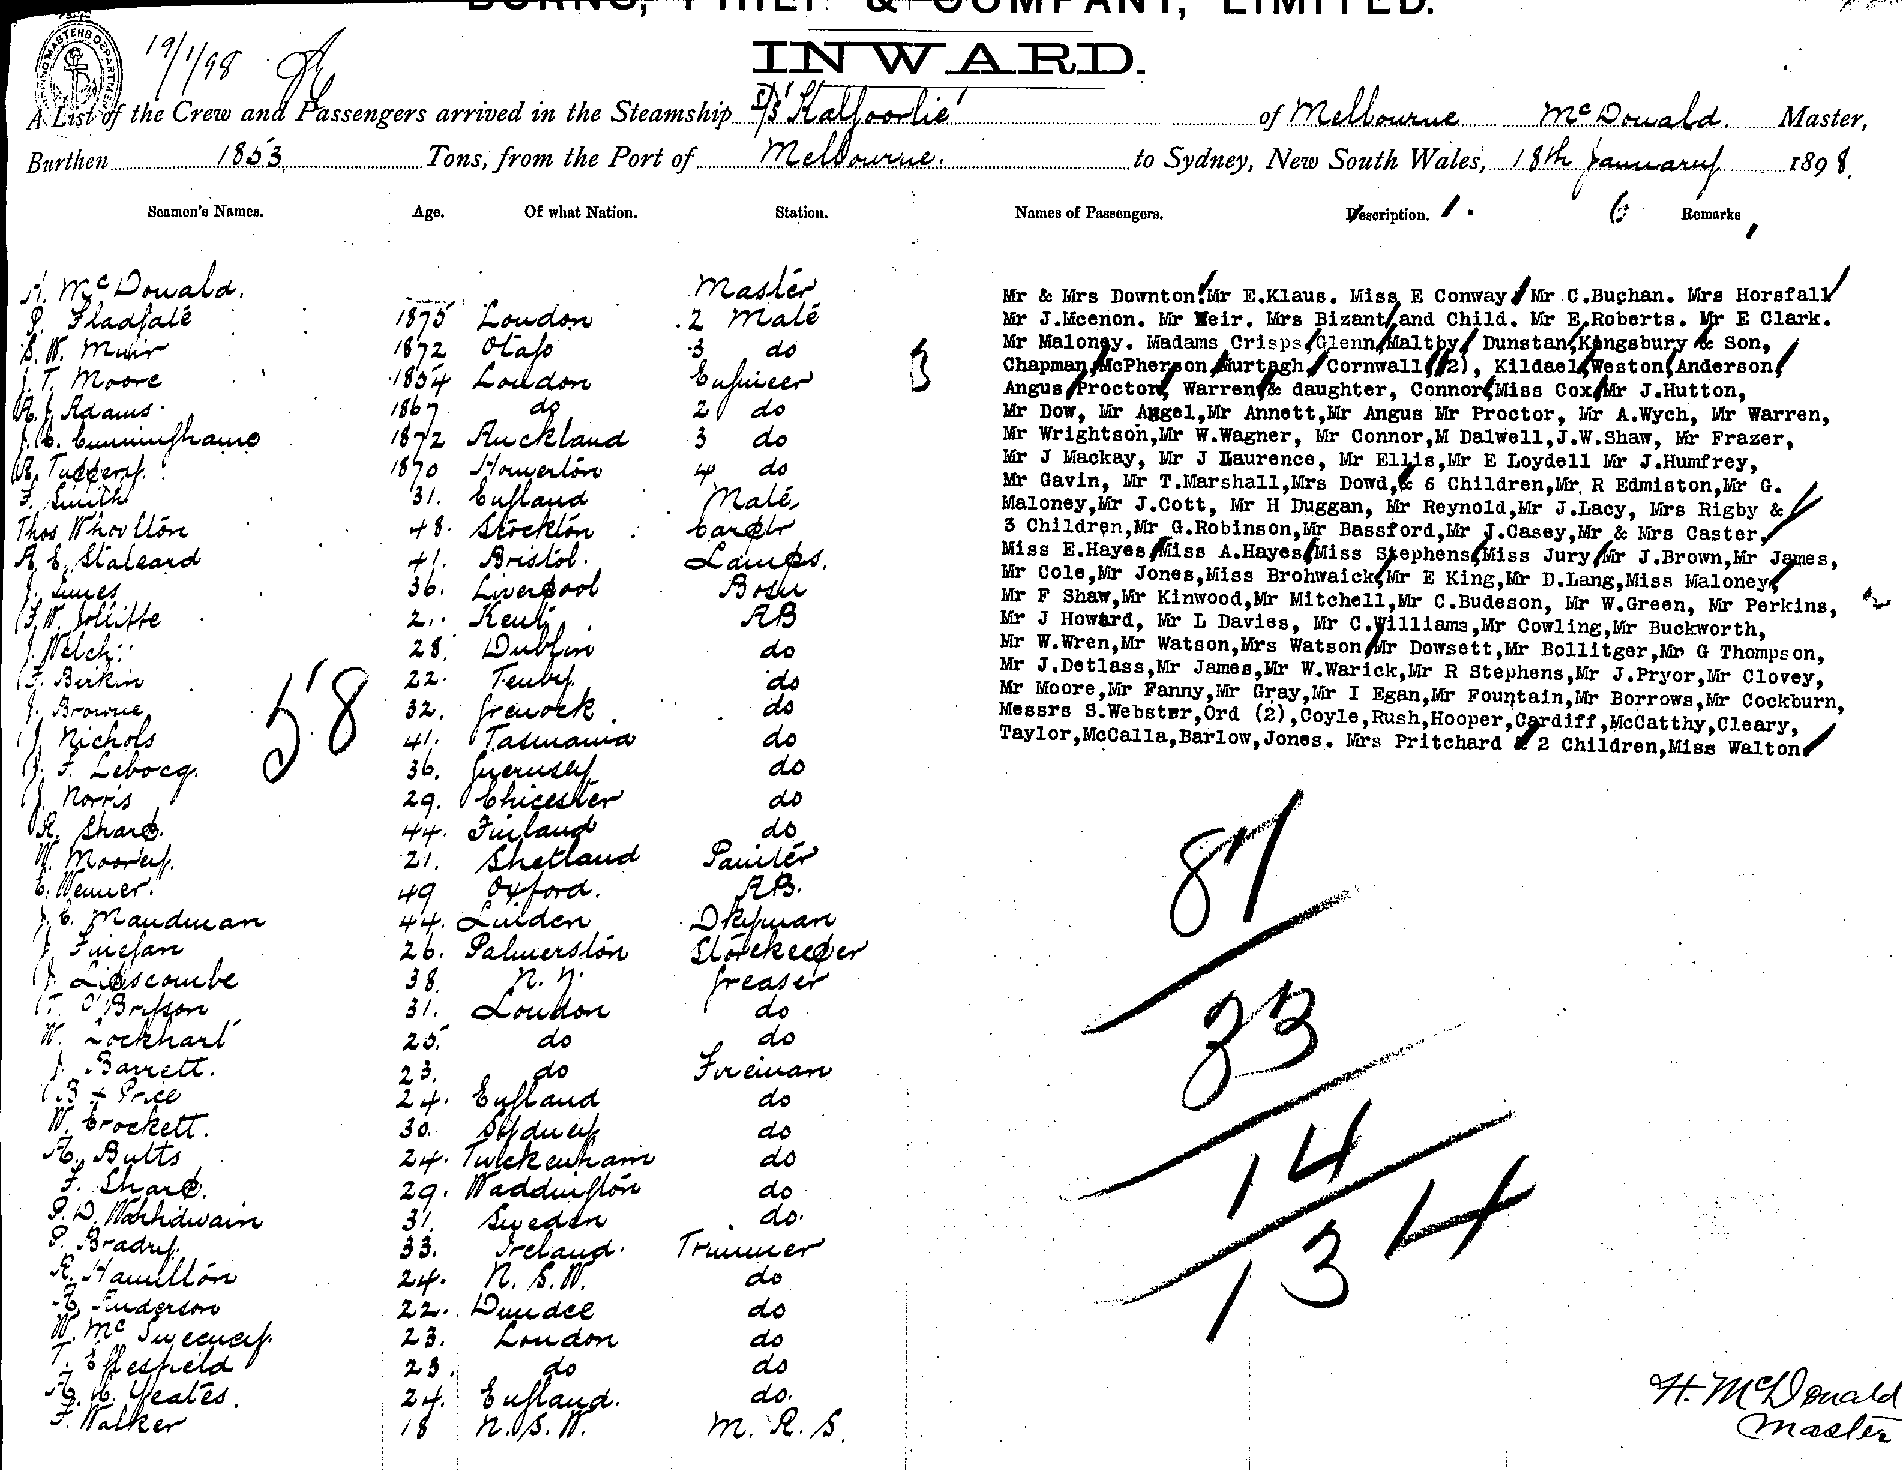 BURNS, PHILP & COMPANY, LIMITED.
INWARD.
19/1/98
A List of the Crew and Passengers arrived in the Steamship S/S 'Kalgoorlie' of Melbourne McDonald. Master,
Burthen 1853 Tons, from the Port of Melbourne. to Sydney, New South Wales, 18th January 1898.
Seamen's Names. Age. Of what Nation. Station. Names of Passengers. Description. 1. 6 Remarks
H. McDonald. Master
1875 London 2 Mate
S. W. Muir 1872 Otago 3 do
J. T. Moore 1854 London Engineer
A. J. Adams 1867 do 2 do
J. C. Cunninghame 1872 Auckland 3 do
1870 4 do
F. Smith 31. England Mate,
Thos Whoulton 48. Stockton : Carptr
41. Bristol. Lamps.
J. 36. Liverpool Bosn
F. W. Jolliffe 2 . Kent AB
J. Welch 28. Dublin do
F. Birkin 22. Tenby do
J. Browne 32. Grenock do
J. Nichols 41. Tasmania do
J. F. Lebocq. 36. Guernsey do
J. Norris 29. Chicester do
R. Sharp. 44. Finland do
W. Moorey. 21. Shetland Painter
C. Wenner. 49 Oxford. AB.
J. C. Maudman 44. Linden Dkyman
J. Finegan 26. Palmerston Storekeeper
J. Lipscombe 38. N. Y. Greaser
31. London do
W. Lockhart 25. do do
J. Barrett. 23. do Fireman
B + Price 24. England do
W. Crockett. 30. Sydney do
A. Butts 24. Twickenham do
F. Sharp. 29. Waddington do
P. D. 31. Sweden do.
P. Brady. 33. Ireland. Trimmer
R. Hamilton 24. N. S. W. do
A. Anderson 22. Dundee do
W. McSweeney. 23. London do
T. 23. do do
A. C. Yeates. 24. England. do.
F. Walker 18 N. S. W. M. R. S.
58
3
Mr & Mrs Downton.Mr E.Klaus. Miss E Conway Mr C.Buchan. Mrs Horsfall
Mr J.Mcenon. Mr Weir. Mrs Bizant and Child. Mr E.Roberts. Mr E Clark.
Mr Maloney. Madams Crisps,Glenn,Maltby, Dunstan,Kingsbury & Son,
Chapman,McPherson,Murtagh, Cornwall (2), Kildael,Weston,Anderson,
Angus,Procton, Warren,& daughter, Connor,Miss Cox,Mr J.Hutton,
Mr Dow, Mr Angel,Mr Annett,Mr Angus Mr Proctor, Mr A.Wych, Mr Warren,
Mr Wrightson,Mr W.Wagner, Mr Connor,M Dalwell,J.W.Shaw, Mr Frazer,
Mr J Mackay, Mr J Laurence, Mr Ellis,Mr E Loydell Mr J.Humfrey,
Mr Gavin, Mr T.Marshall,Mrs Dowd,& 6 Children,Mr R Edmiston,Mr G.
Maloney,Mr J.Cott, Mr H Duggan, Mr Reynold,Mr J.Lacy, Mrs Rigby &
3 Children,Mr G.Robinson,Mr Bassford,Mr J.Casey,Mr & Mrs Caster,
Miss E.Hayes,Miss A.Hayes,Miss Stephens,Miss Jury,Mr J.Brown,Mr James,
Mr Cole,Mr Jones,Miss Brohwaick,Mr E King,Mr D.Lang,Miss Maloney,
Mr F Shaw,Mr Kinwood,Mr Mitchell,Mr C.Budeson, Mr W.Green, Mr Perkins,
Mr J Howard, Mr L Davies, Mr C.Williams,Mr Cowling,Mr Buckworth,
Mr W.Wren,Mr Watson,Mrs Watson,Mr Dowsett,Mr Bollitger,Mr G Thompson,
Mr J.Detlass,Mr James,Mr W.Warick,Mr R Stephens,Mr J.Pryor,Mr Clovey,
Mr Moore,Mr Fanny,Mr Gray,Mr I Egan,Mr Fountain,Mr Borrows,Mr Cockburn,
Messrs S.Webster,Ord (2),Coyle,Rush,Hooper,Cardiff,McCatthy,Cleary,
Taylor,McCalla,Barlow,Jones. Mrs Pritchard & 2 Children,Miss Walton
87
33
14
134
H. McDonald
Master